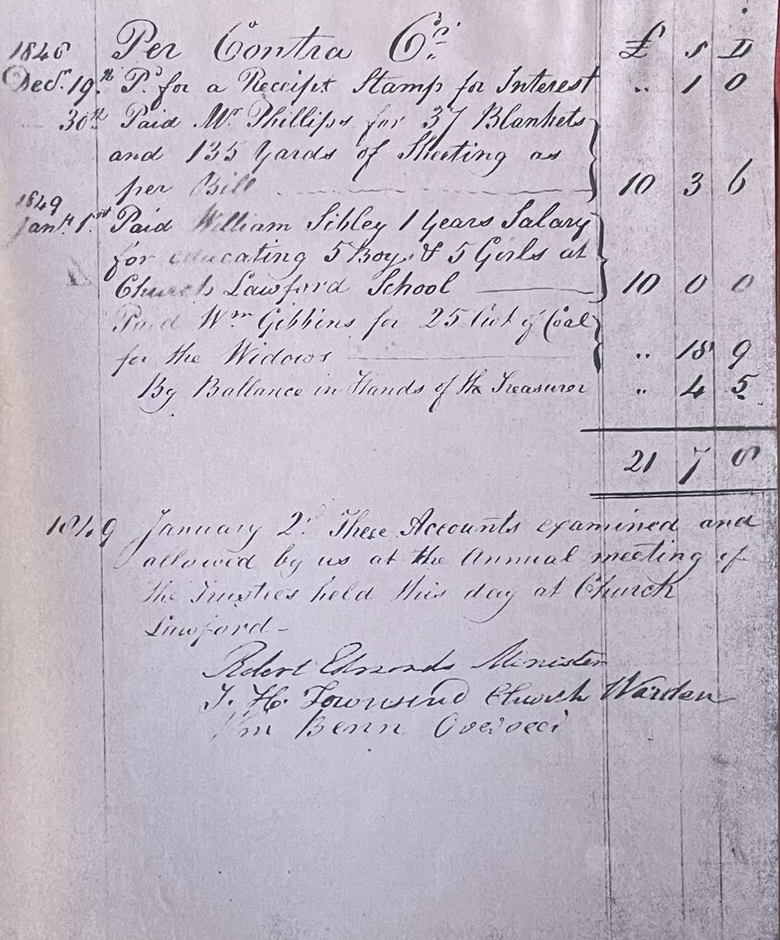 1848 Per Contra Cr. £ s D
Decr. 19th Pd. for a Receipt Stamp for Interest „ 1 0
30th Paid Mr Phillips for 37 Blankets
and 135 Yards of Sheeting as
per Bill 10 3 6
1849
Jany 1st Paid William Sibley 1 Years Salary
for educating 5 Boys & 5 Girls at
Church Lawford School 10 0 0
Paid Wm Gibbins for 25 Cwt of Coal
for the Widows „ 18 9
By Ballance in Hands of the Treasurer „ 4 5
21 7 8
1849 January 2d. These Accounts examined and
allowed by us at the Annual meeting of
the Trustees held this day at Church
Lawford-
Robert Edmonds Minister
T. H. Townsend Church Warden
Wm Benn Overseer